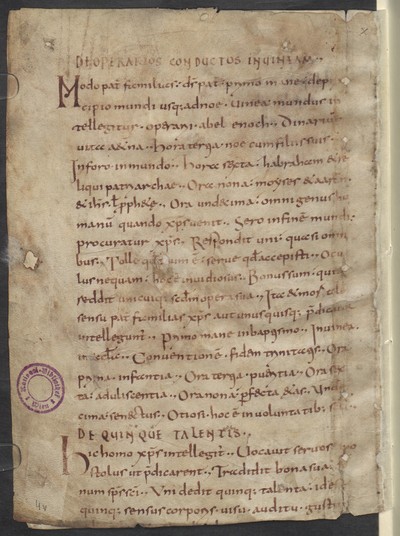 DE OPERARIOS CONDUCTOS IN VINEAM..
Modo pat familias: ds pat. primo mane: de prin
cipio mundi usq; ad noe. Vinea mundus in
tellegitur. operarii. abel enoch. Dinarius
vita aeterna. Hora tertia. noe cum filiis suis.
In foro in mundo. Hora sexta: habraham & re
liqui patriarchae. Ora nona. moyses & aaron
Ora undecima. omni genus hu
manum quando xps venit. Sero in fine mundi.
procuratur xps. Respondit uni: quasi omni
bus. Tolle quod tuum e: serve qd accepisti. Ocu
lus nequam. hec e invidiosus. Bonus sum. qui
reddit unicuiq; scdm opera sua. Itaec
sensu pat familias xps aut unusquisq; p̄dica
intellegunt. Primo mane in baptismo. In vinea.
in ecclesia. Conventione. fidem trinitatis. Ora
prima. infantia. Ora tertia. pueritia. Ora sex
ta: adulescentia. Ora nona. p̄fecta aetas. Unde
cima senectus. Otiosi. hoc e in voluntatib;
DE QUINQUE TALENTIS..
hic homo xps intellegit. Vocavit servos
stolus ut p̄dicarent. Tradidit bona sua.
num Uni dedit quinq; talenta: ide
quinq; sensus corporis. visu. auditu. gustu